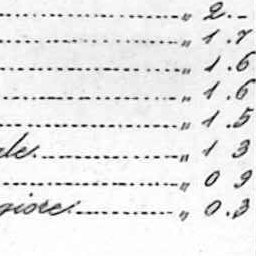 „ 2.–
„ 1.7
„ 1.6
„ 1.6
„ 1.5
ale „ 1 3
„ 0 9
giore „ 0.3